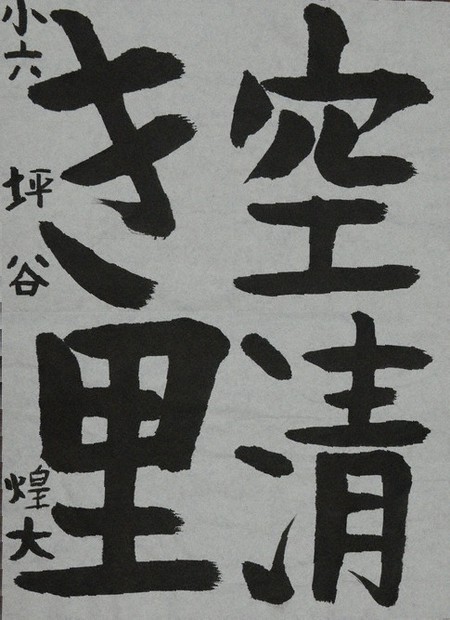 空清
き里
小六 坪谷 煌大